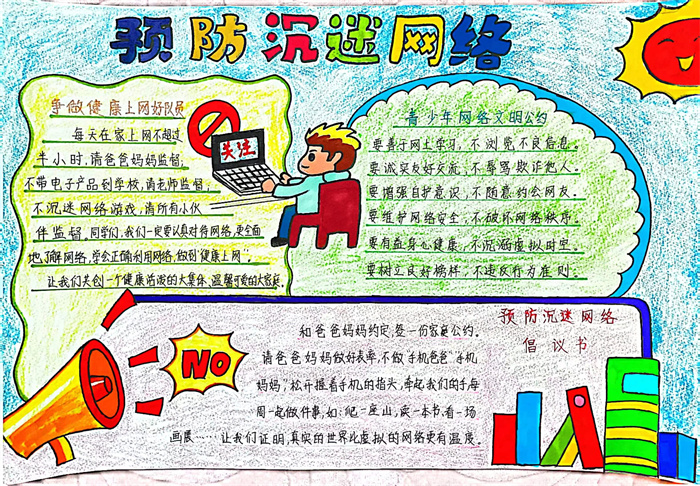 预防沉迷网络
争做健康上网好队员
每天在家上网不超过
半小时,请爸爸妈妈监督;
不带电子产品到学校,请老师监督;
不沉迷网络游戏,请所有小伙
伴监督。同学们,我们一定要认真对待网络,更全面
地了解网络,学会正确利用网络,做到“健康上网”,
让我们共创一个健康活泼的大集体、温馨可爱的大家庭。
关注
青少年网络文明公约
要善于网上学习,不浏览不良信息。
要诚实友好交流,不辱骂欺诈他人。
要增强自护意识,不随意约会网友。
要维护网络安全,不破坏网络秩序。
要有益身心健康,不沉溺虚拟时空。
要树立良好榜样,不违反行为准则。
NO
预防沉迷网络
倡议书
和爸爸妈妈约定,签一份家庭公约。
请爸爸妈妈做好表率,不做“手机爸爸”“手机
妈妈”,松开握着手机的指头,牵起我们的手每
周一起做件事,如:爬一座山,读一本书,看一场
画展……让我们证明,真实的世界比虚拟的网络更有温度。